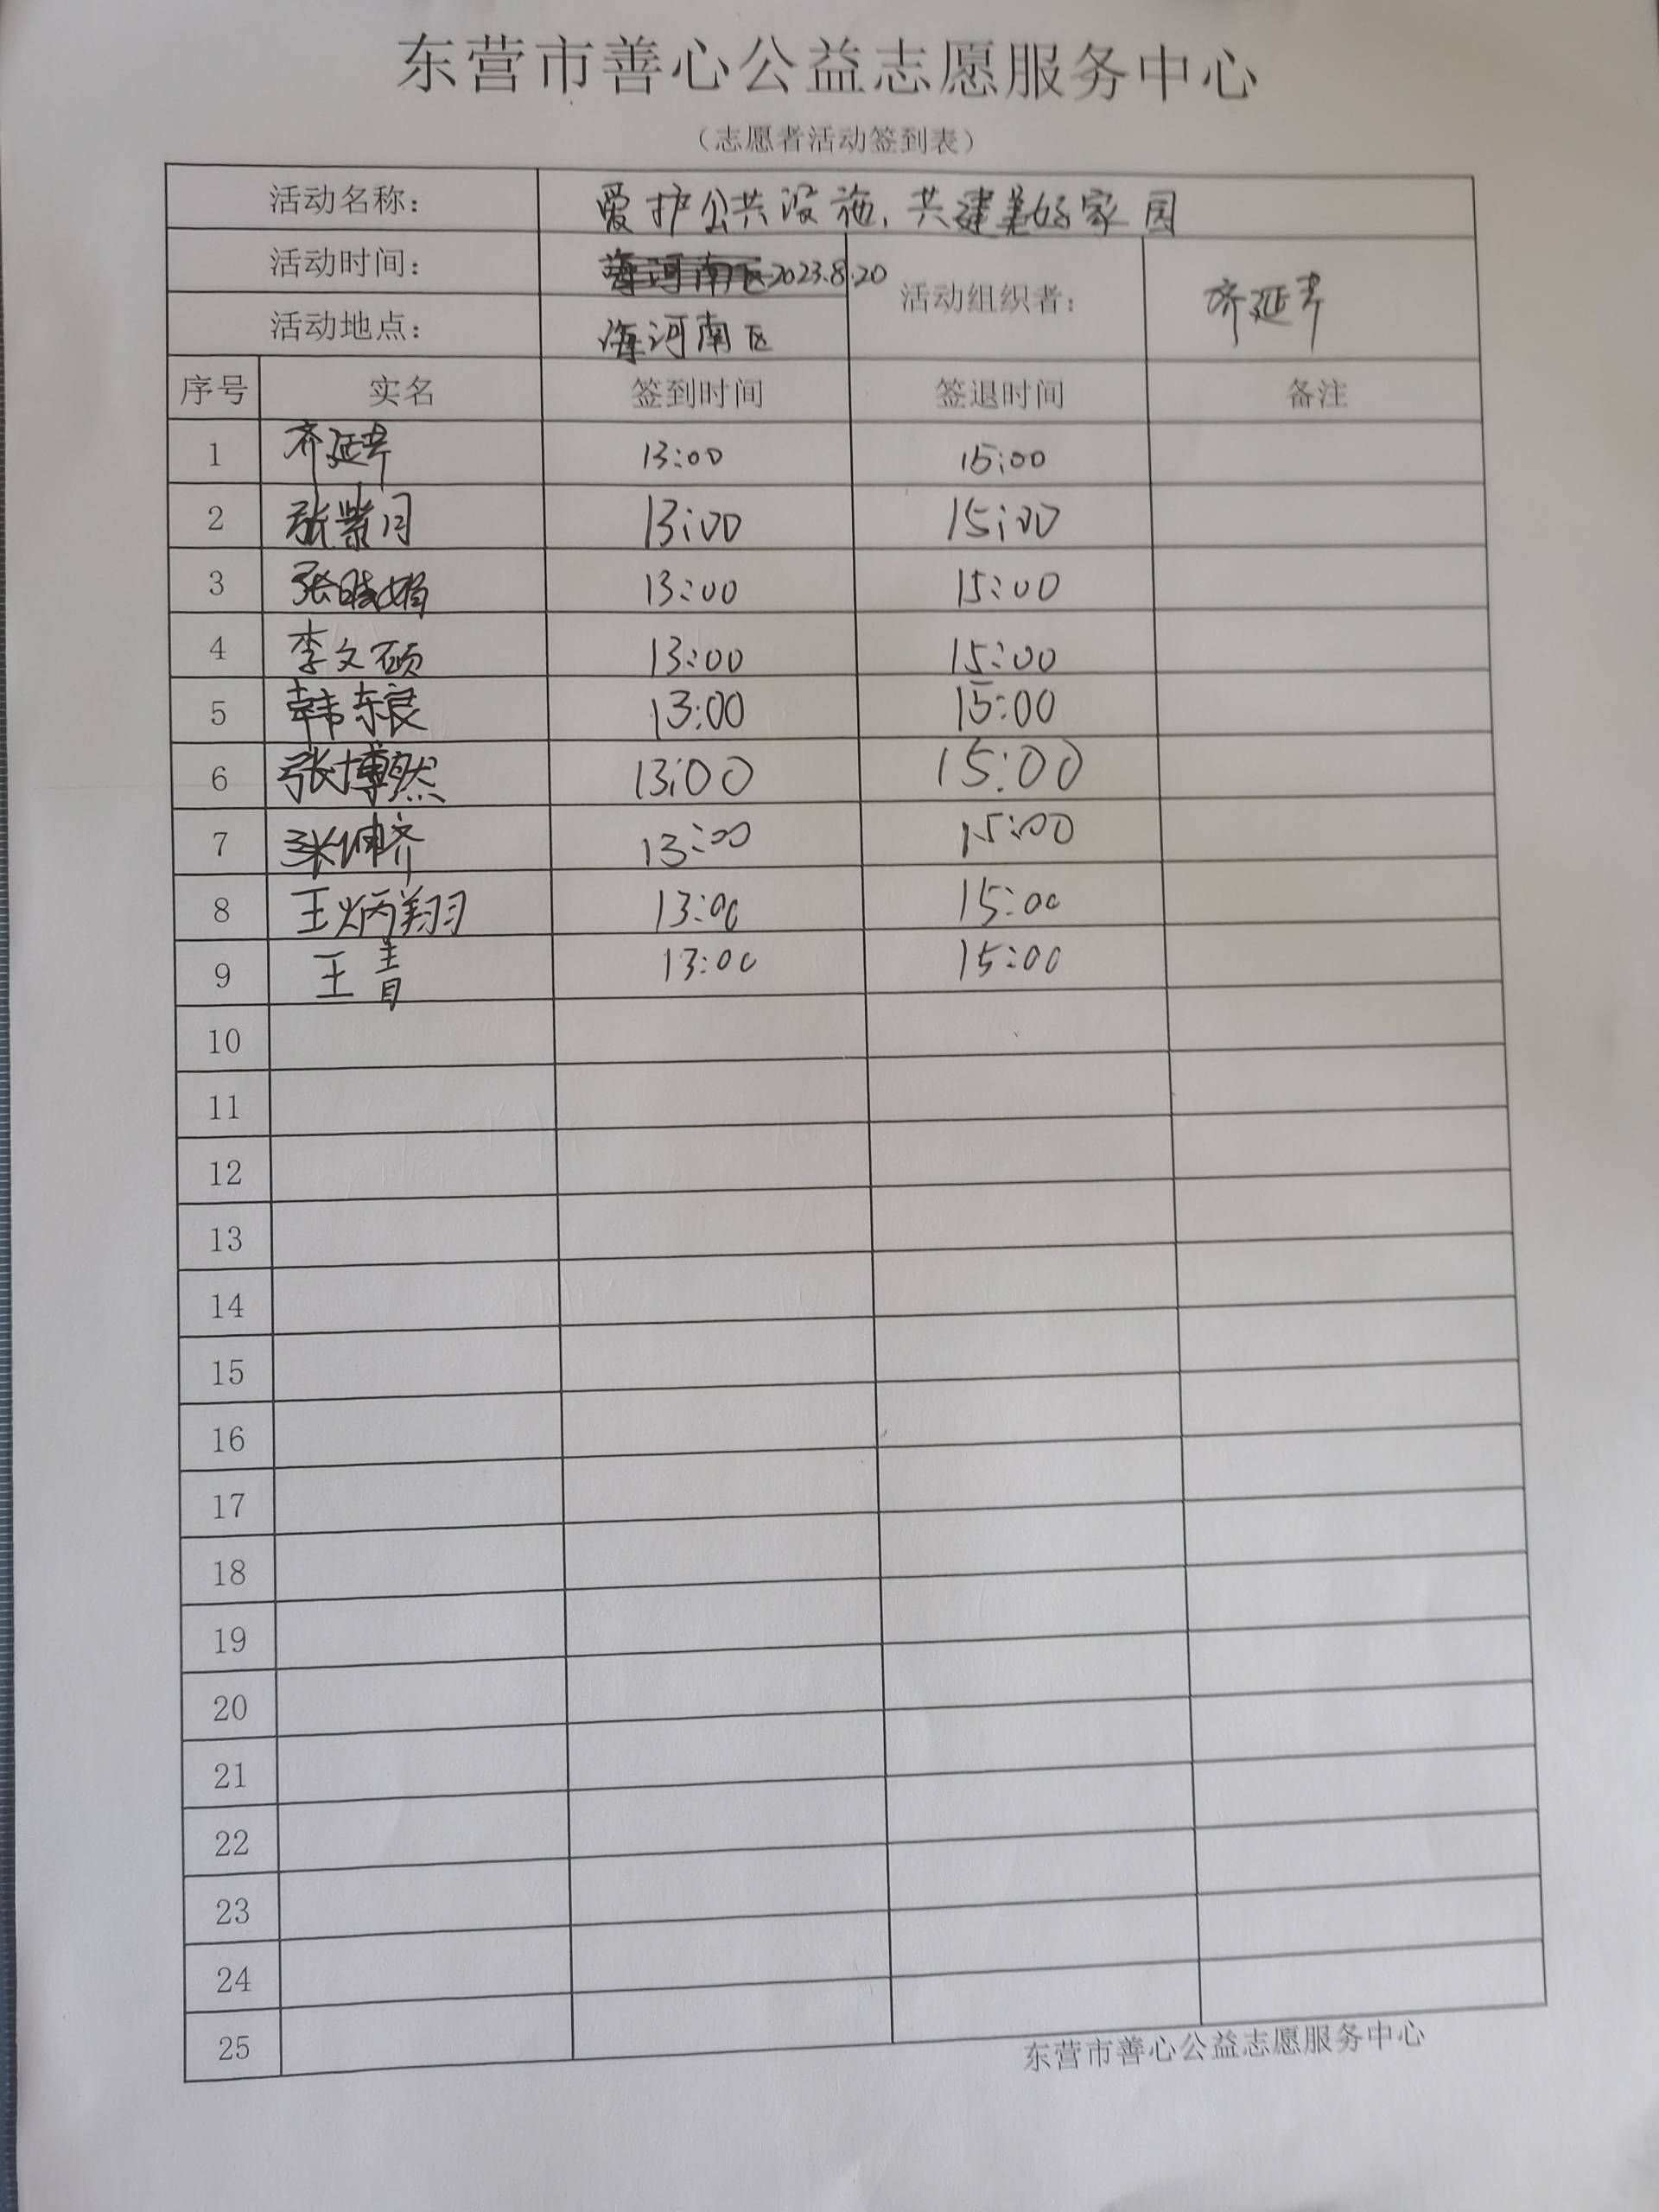 东营市善心公益志愿服务中心
（志愿者活动签到表）
活动名称： 爱护公共设施，共建美好家园
活动时间： 2023.8.20 活动组织者： 齐延芹
活动地点： 海河南区
序号 实名 签到时间 签退时间 备注
1 齐延芹 13:00 15:00
2 张紫月 13:00 15:00
3 张晓娟 13:00 15:00
4 李文硕 13:00 15:00
5 韩东良 13:00 15:00
6 张博然 13:00 15:00
7 13:00 15:00
8 王炳翔 13:00 15:00
9 王青 13:00 15:00
10
11
12
13
14
15
16
17
18
19
20
21
22
23
24
25
东营市善心公益志愿服务中心